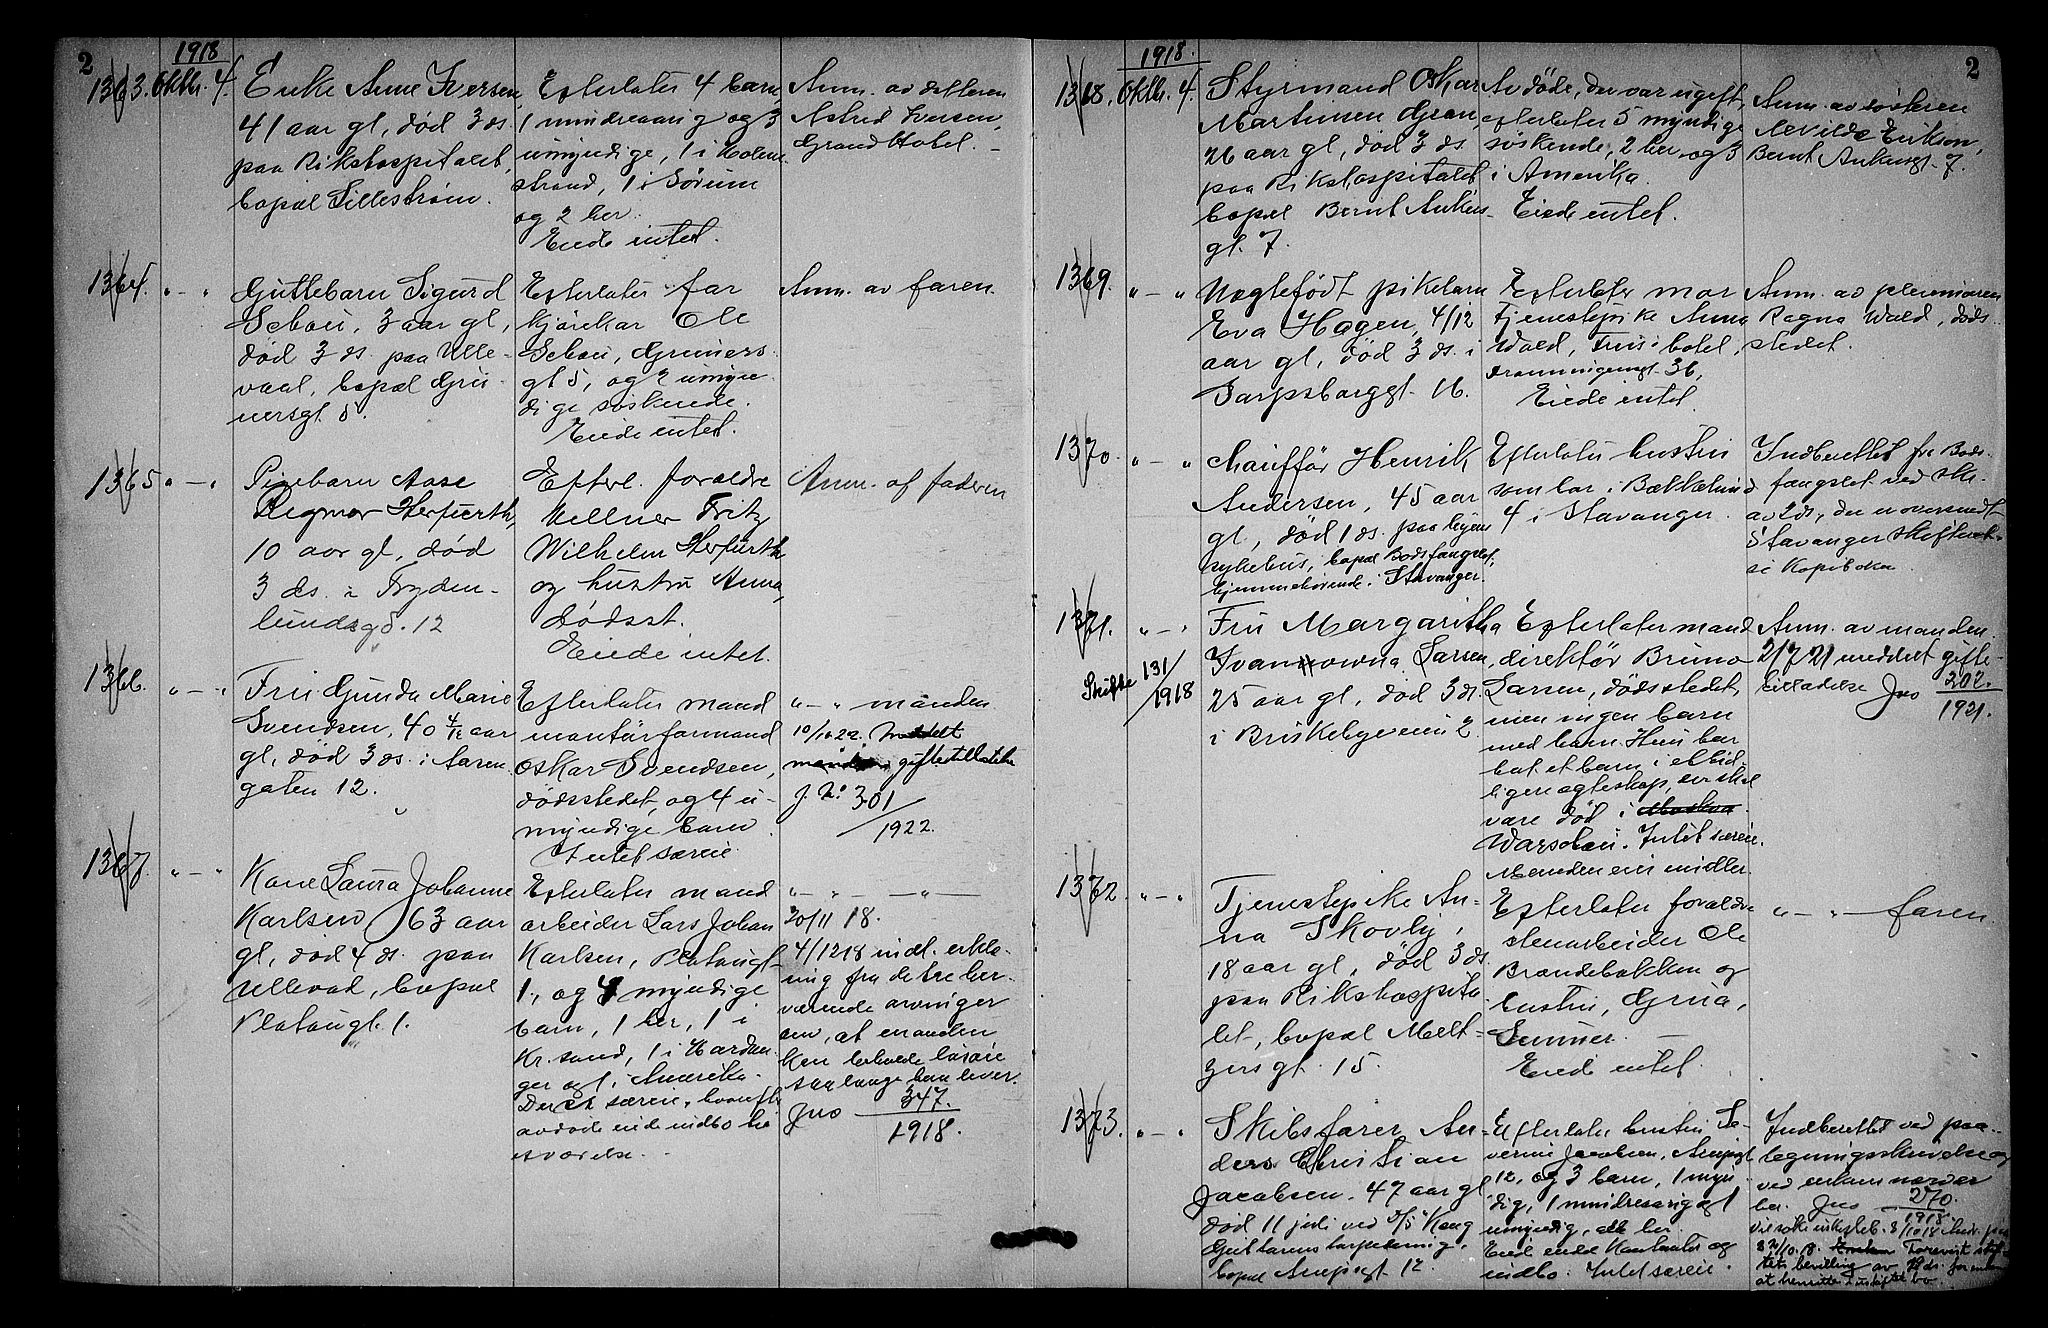 2
1918
1363. Oktbr. 4.
Enke Anne Iversen,
41 aar gl, død 3 ds.
paa Rikshospitalet,
bopæl Lillestrøm.
Efterlater 4 barn,
1 mindreaarig og 3
umyndige, 1 i Holme-
strand, 1 i Sørum
og 2 her.
Eiede intet.
Anm. av datteren
Astrid Iversen,
Grand Hotel. -
1364. " - "
Guttebarn Sigurd
Schou, 3 aar gl,
død 3 ds. paa Ulle-
vaal, bopæl Grü-
nersgt. 5.
Efterlater far
kjørekar Ole
Schou, Grüners
gt 5, og 2 umyn-
dige søskende.
Eiede intet.
Anm. av faren.
1365 " - "
Pigebarn Aase
Dagmar Herfurth,
10 aar gl, død
3 ds. i Fryden-
lundsgd. 12
Efterl. foraldre
Kellner Fritz
Wilhelm Herfurth
og hustru Anna,
dødsst.
Eiede intet.
Anm. af faderen
1366. " - "
Fru Gunda Marie
Svendsen, 40 4/12 aar
gl, død 3 ds. i Aaren
gaten 12.
Efterlater mand
montørformand
Oskar Svendsen,
dødsstedet, og 4 u-
myndige barn.
Intet særeie.
" - " manden
10/10.22. Meddelt
manden giftetillatelse
J. No 301/
1922.
1367. " - "
Kone Laura Johanne
Karlsen, 63 aar
gl, død 4 ds. paa
Ullevaal, bopæl
Platougt. 1.
Efterlater mand
arbeider Lars Johan
Karlsen, Platougt.
1, og 4 myndige
barn, 1 her, 1 i
Kr.sand, 1 i Hardan-
ger og 1 i Amerika.
Der er særeie, hvorefter
avdøde eiede indbo til
" - " - " -
30/11 18.
4/12 18 indl. erklæ-
ring fra de tre her-
værende arvinger
om, at manden
kan beholde særeie
saalænge han lever.
Jno 347.
1918.
2
1918.
1368. Oktbr. 4.
Styrmand Oskar
Martinsen Gran,
26 aar gl, død 3 ds.
paa Rikshospitalet
bopæl Bernt Ankers
gt. 7.
Avdøde, der var ugift,
efterlater 5 myndige
søskende, 2 her, og 3
i Amerika.
Eiede intet.
Anm. av søsteren
Alvilde Erikson,
Bernt Ankersgt. 7.
1369. " - "
Uægtefødt pikebarn
Eva Hagen, 4/12
aar gl, død 3 ds. i
Sarpsborggt. 16.
Efterlater mor
Tjenestepike Anna
Wold,
Dronningensgt. 36,
Eiede intet.
Anm. av pleiemoren
Ragna Wold, døds-
stedet.
1370. " - "
Chauffør Henrik
Andersen, 45 aar
gl, død 1 ds. paa byens
sykehus, bopæl Bodsfængslet,
hjemmehørende i Stavanger.
Efterlater hustru
som bor i Bakkelund
4 i Stavanger.
Indberettet fra Bods-
fængslet ved skr.
av 2 ds, der er oversendt
Stavanger skifteret.
se Kopiboken
1371. " - "
Skifte 131/
1918
Fru Margaritha
Ivanowna Larsen,
25 aar gl, død 3 ds.
i Briskebyveien 2
Efterlater mand
direktør Bruno
Larsen, dødsstedet,
men ingen barn
med ham. Hun har
hat et barn i et tid-
ligere ægteskap, der skal
være død i Moskva
Warschau. Intet særeie.
Manden eier midler.
Anm. av manden.
2/7 21 meddelt gifte-
tilladelse Jno 202.
1921.
1372. " - "
Tjenestepike An-
na Skovly,
18 aar gl, død 3 ds.
paa Rikshospita-
let, bopæl Melt-
zers gt. 15.
Efterlater foraldre
stenarbeider Ole
Brandebakken og
hustru, Grua,
Lunner. -
Eiede intet.
" - " - faren.
1373. " - "
Skibsfører An-
ders Christian
Jacobsen. 47 aar gl
død 11 juli ved D/S Kong
Guttorms torpedering,
bopæl Arupsgt. 12.
Efterlater hustru Se-
verine Jacobsen, Arupsgt
12, og 3 barn, 1 myn-
dig, 1 mindreaarig og 1
umyndig, alle her.
Eied endel kontanter og
indbo. Intet særeie.
Indberettet ved paa-
tegningsskrivelse og
ved enkens nærvær
her. Jno 270.
1918.